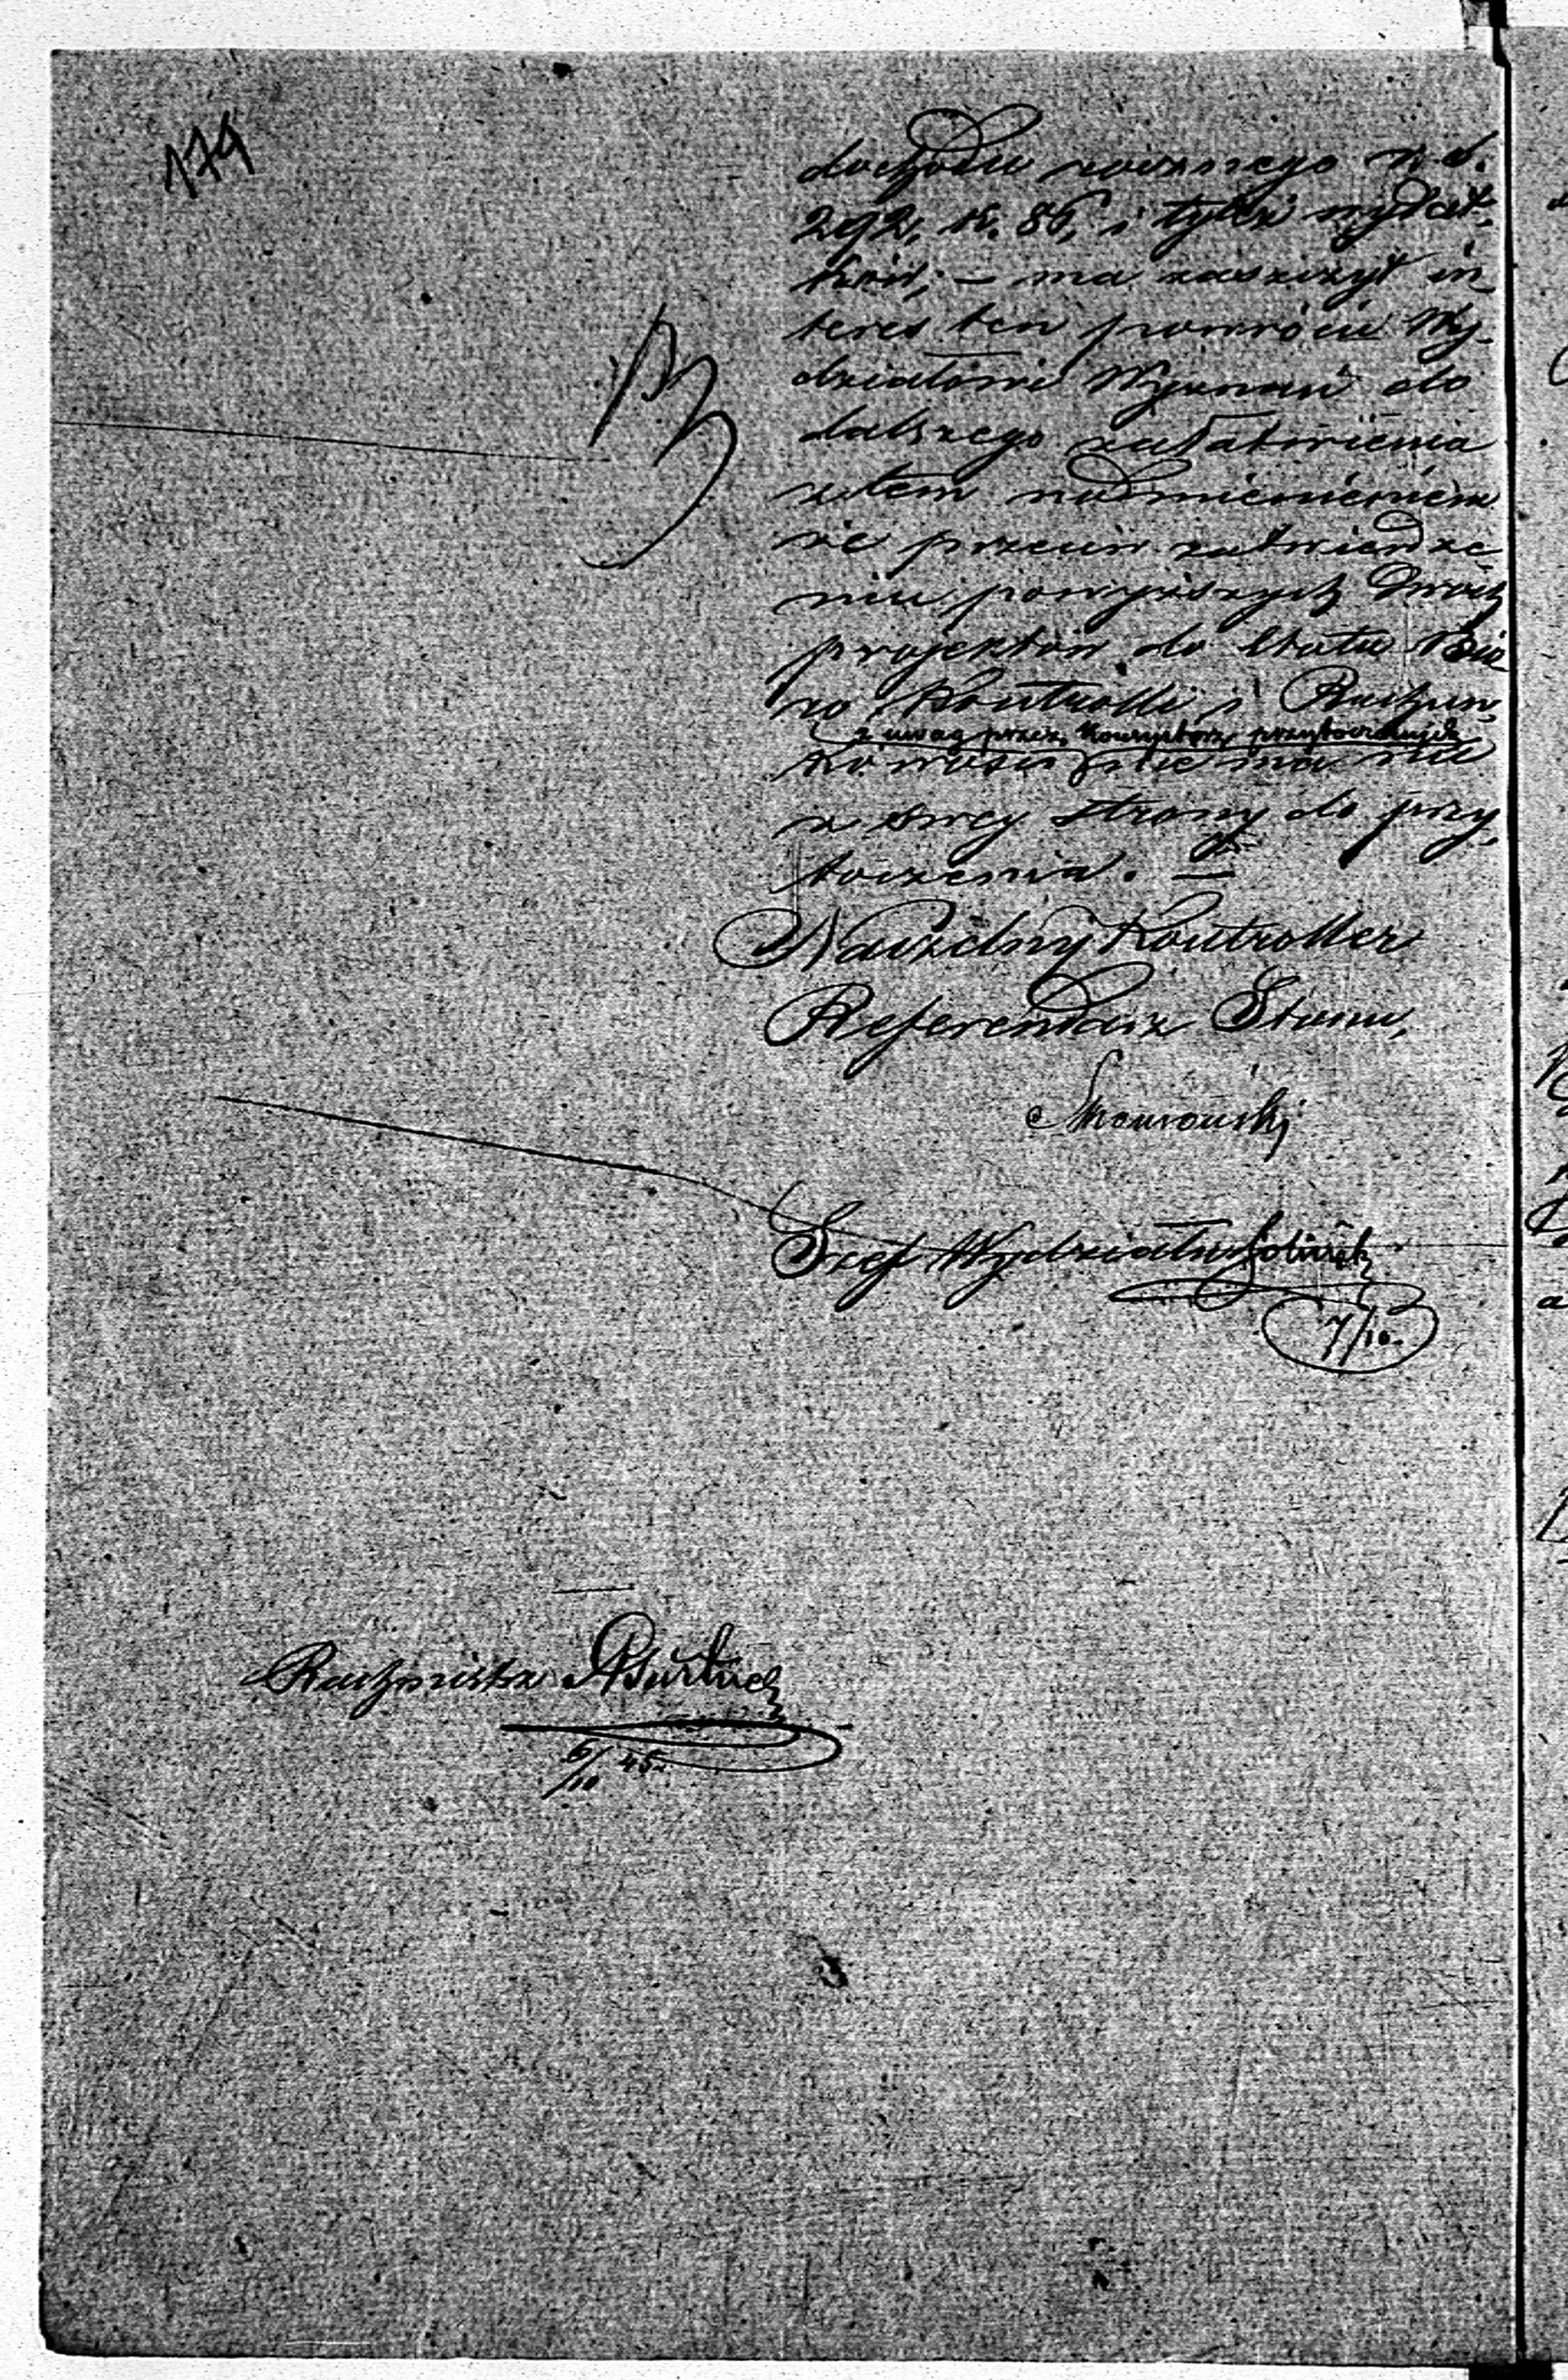 174
dochodu rocznego rs.
292, k. 86, i tyleż wydat,
ków; — ma zaszczyt in
teres ten powrócić Wy-
działowi Wyznań do
dalszego załatwienia
z tem nadmienieniem
że przeciw zatwierdze
niu powyższych dwóch
projektów do Etatu Biu
ro Kontrolli i Rachun,
z uwag przez Konsystorz przytoczonych
kowości nie ma nic
z swej strony do przy,
toczenia. —
Naczelny Kontroller
Referendarz Stanu,
Szef Wydziału
7/10.
Rachmistrz
6/10 45